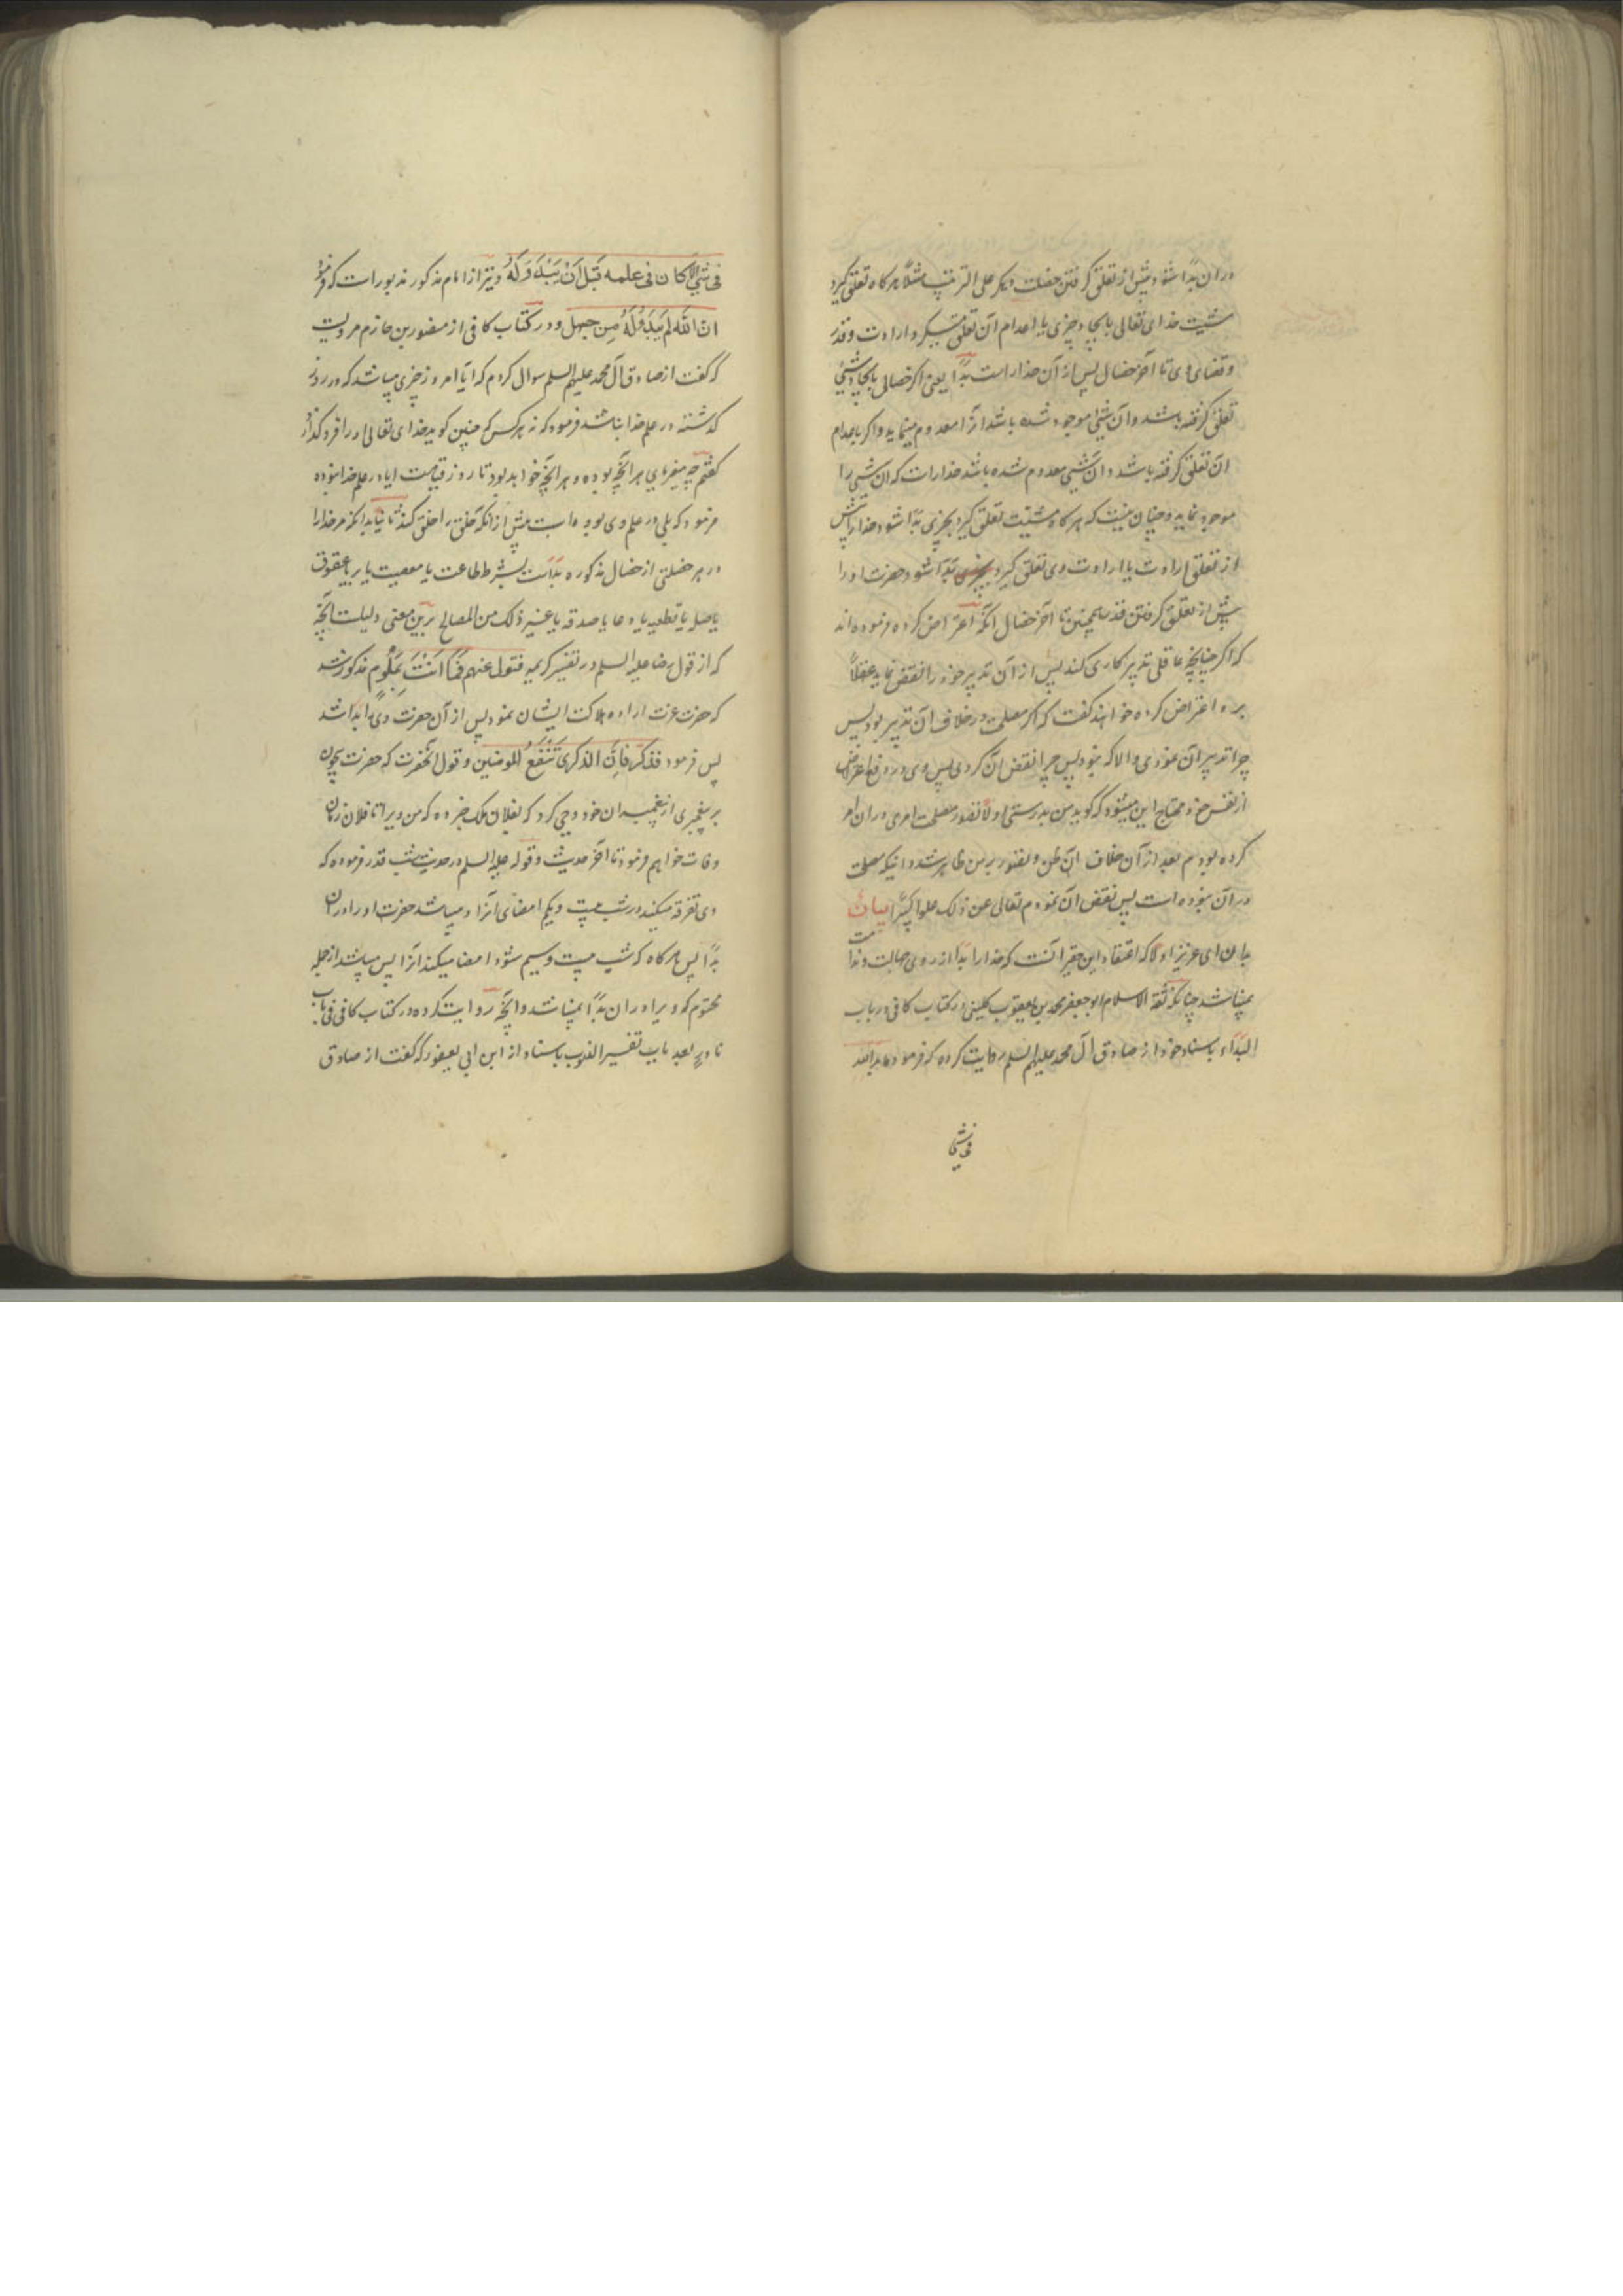 در ان بدا شود پیش از تعلق کرفتن خصلت دیکر علی الترتیب مثلاً هر کاه تعلق کیرد
مشیت خدای تعالی بایجاد چیزی یا اعدام آن تعلق میکیرد ارادت و قدر
و قضای وی تا آخر خصال پس از آن خدا راست بدا یعنی اکر خصالی بایجاد شیئی
تعلق کرفته باشد و آن شیئی موجود شده باشد انرا معدوم مینماید و اکر باعدام
ان تعلق کرفته باشد و آن شیئی معدوم شده باشد خدا راست که ان شیئی را
موجود نماید و چنان نیست که هر کاه مشیّت تعلق کیرد بچیزی بدا شود خدا را پیش
از تعلق ارادت یا ارادت وی تعلق کیرد بدا شود حضرت او را
پیش از تعلق کرفتن قدر همچنین تا آخر خصال انکه اعتراض کرده فرموده اند
که اکر چنانچه عاقلی تدبیر کاری کند پس از آن تدبیر خود را نقض نماید عقلاً
بر ه اعتراض کرده خواهند کفت که اکر مصلحت در خلاف ان تدبیر بود پس
چرا تدبیر آن نمودی و الا که نبود پس چرا نقض ان کردی پس وی در دفع اعتراض
از نفس خود محتاج این میشود که کوید من بدرستی اولاً تصور مصلحت امری در ان امر
کرده بودم بعد از آن خلاف ان ظن و تصور بر من ظاهر شد و انیکه مصلحت
در آن نبوده است پس نقض ان نمودم تعالی عن ذلک علوا کبیراً بیان
بدان ای عزیز اولاً که اعتقاد این حقیر آنست که خدا را بدا از روی جهالت و ندامت
نمیباشد چنانکه ثقة الاسلام ابو جعفر محمد بن یعقوب کلینی در کتاب کافی در باب
البداء باسناد خود از صادق آل محمد علیهم السلم روایت کرده که فرمود ما بدا لله
فی شیئ
فی شیئ الا کان فی علمه قبل أن یبدو له و نیز از امام مذکور مذبور است که فرمود
ان الله لم یبدو له من جهل و در کتاب کافی از منصور بن حازم مرویست
که کفت از صادق آل محمد علیهم السلم سوال کردم که آیا امروز چیزی میباشد که در روز
کذشته در علم خدا نباشد فرمود که نه هر کس که چنین کوید خدای تعالی او را فرو کذارد
کفتم چه میفرمایی هر انچه بوده و هر انچه خواهد بود تا روز قیامت ایا در علم خدا نبوده
فرمود که بلی در علم وی بوده است پیش از انکه خلق را خلق کند ثانیا بدانکه مر خدا را
در هر خصلتی از خصال مذکوره بداست بشرط طاعت یا معصیت یا بر یا عقوق
یا صله یا قطعیه یا دعا یا صدقه یا غیر ذلک من المصالح بر این معنی دلیلست انچه
که از قول رضا علیه السلم در تفسیر کریمه فتول عنهم فما انت بملوم مذکور شد
که حضرت عزت اراده هلاکت ایشان نمود پس از آن حضرت وی را بدا شد
پس فرمود فذکر فان الذکری تنفع المومنین و قول انحضرت که حضرت بیچون
بر پیغمبری از پیغمبران خود وحی کرد که بفلان ملک خبر ده که من ویرا تا فلان زمان
وفات خواهم فرمود تا آخر حدیث و قوله علیه السلم در حدیث شب قدر فرموده که
وی تفرقه میکند در شب بیست و یکم امضای آنرا و میباشد حضرت او را در ان
بدا پس هر کاه که شب بیست و سیم شود امضا میکند انرا پس میباشد از جمله
محتوم که ویرا در ان بدا نمیباشد و انچه روایت کرده در کتاب کافی فی باب
نادر بعد باب تفسیر الذنوب باسناد از ابن ابی یعفور که کفت از صادق